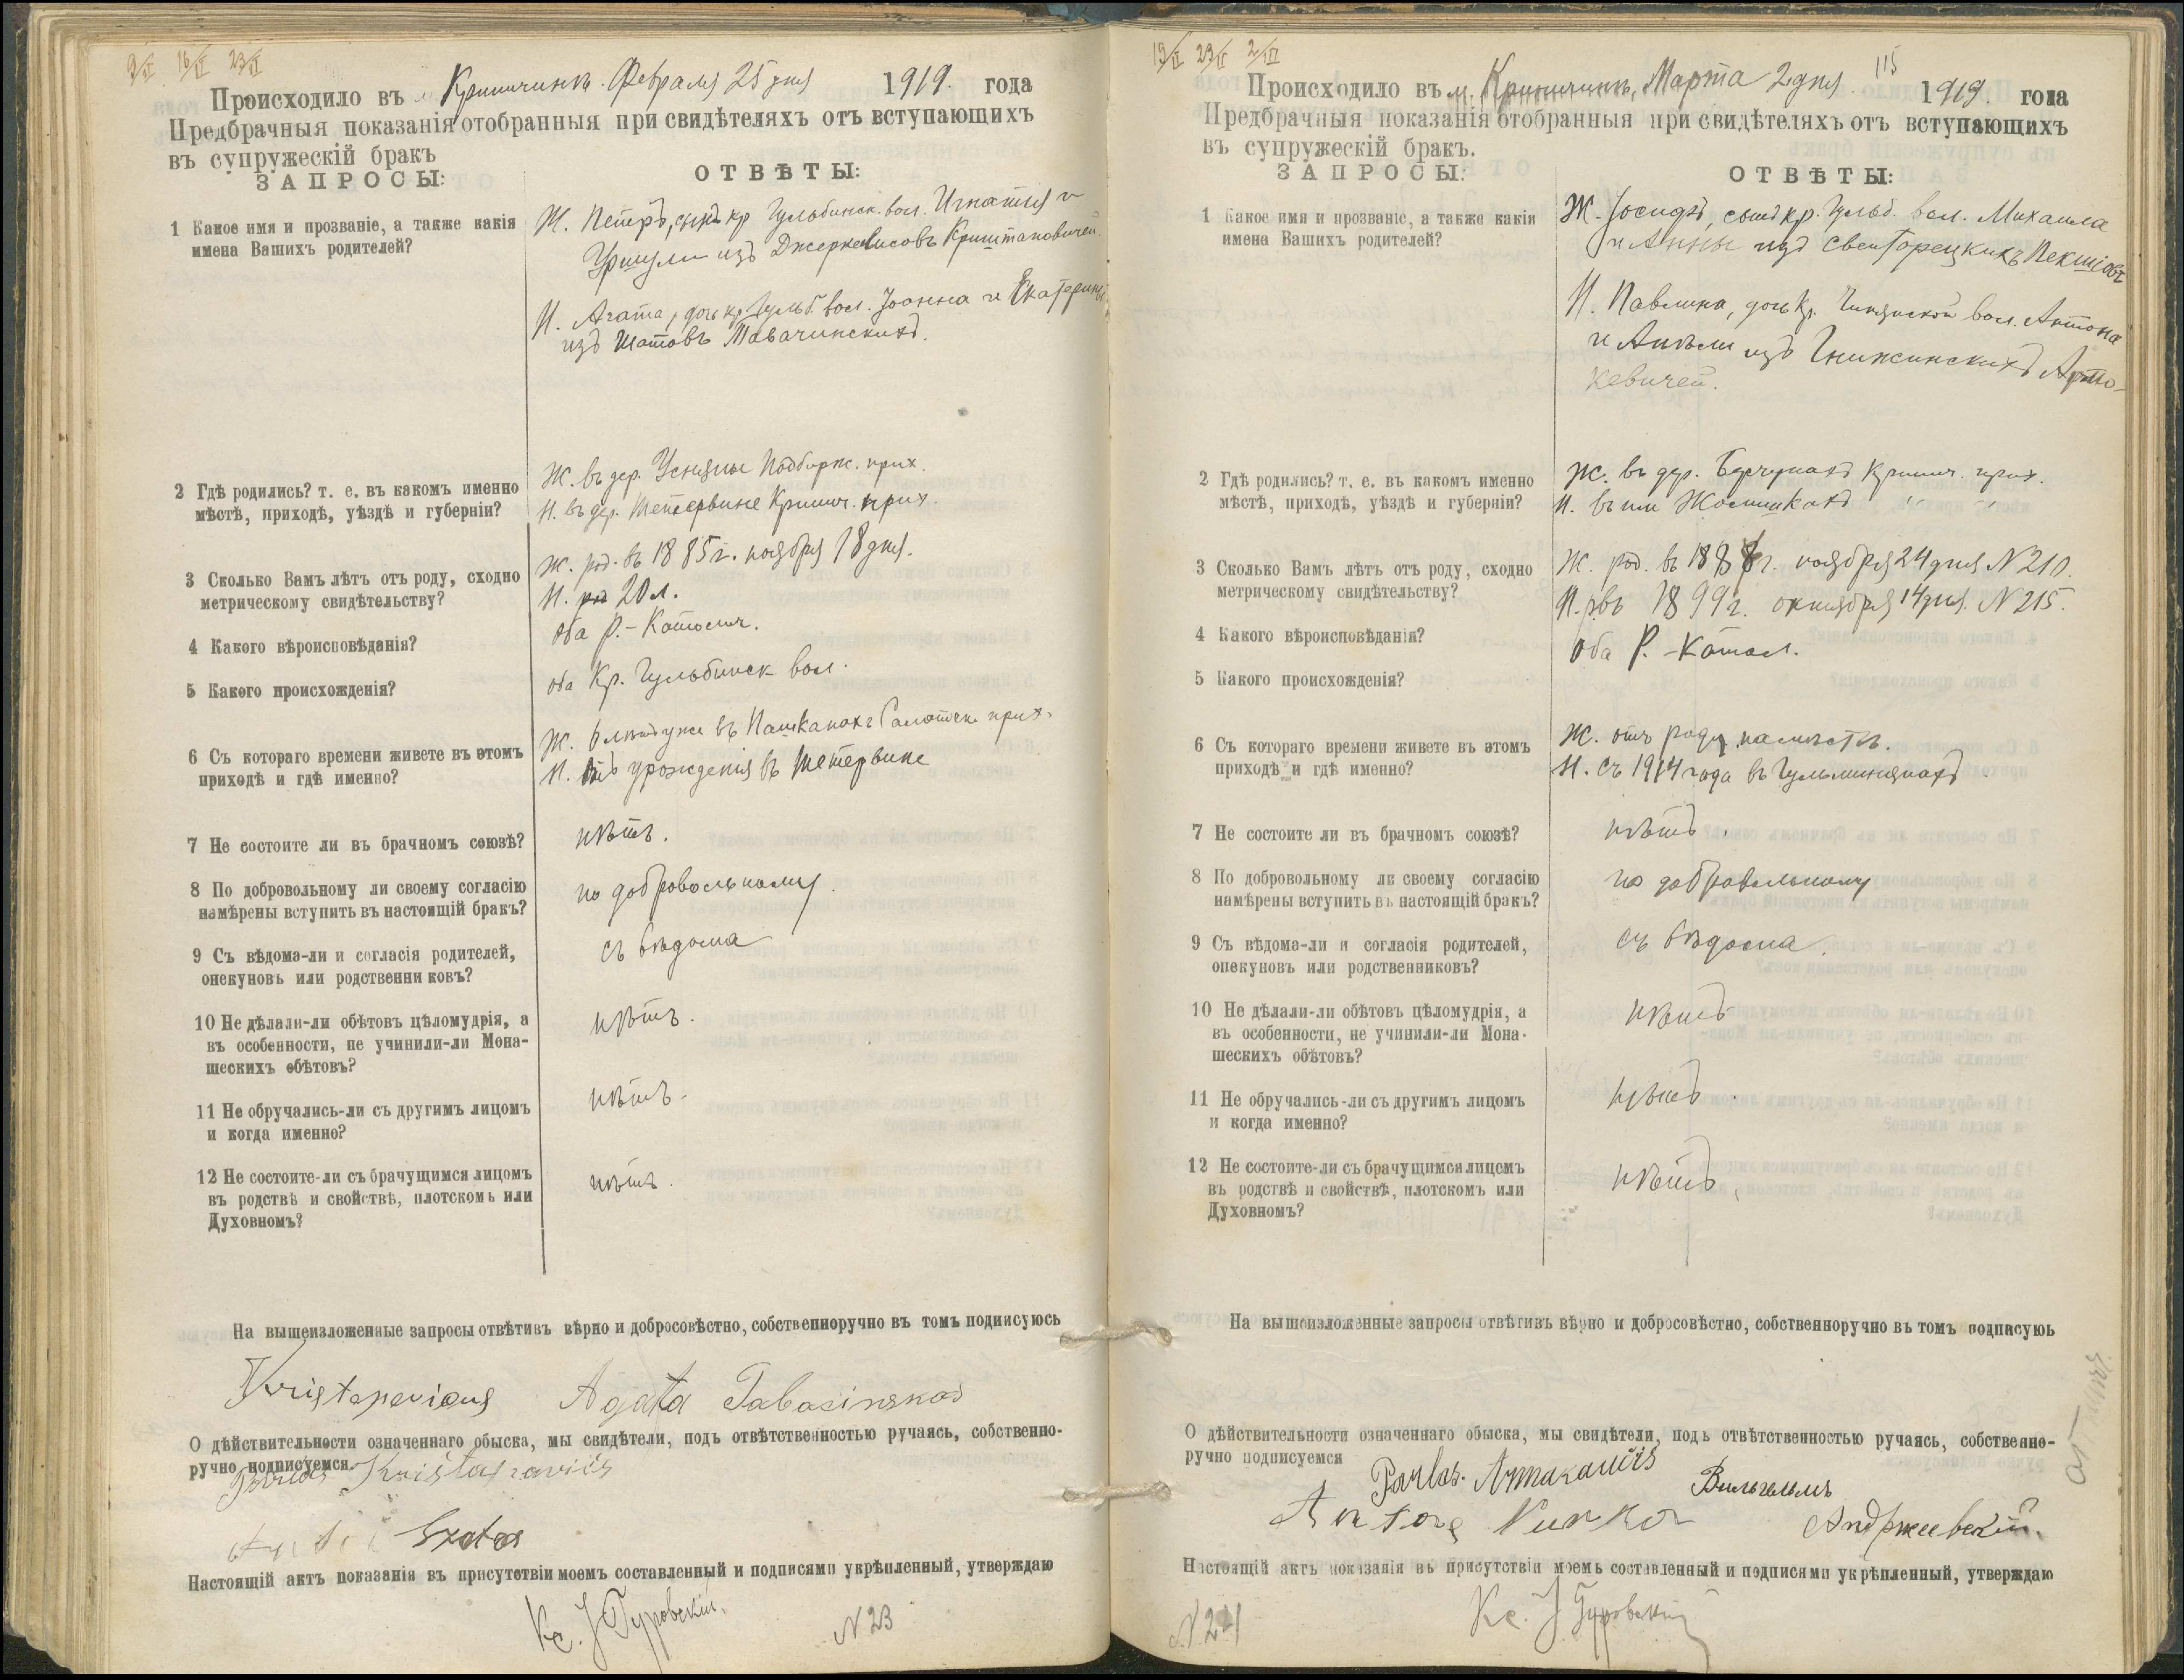 9/II 16/II 23/II
Происходило въ м. Криничинъ. Февраля 25 дня 1919. года
Предбрачныя показанія отобранныя при свидѣтеляхъ отъ вступающихъ
въ супружескій бракъ
ЗАПРОСЫ:
ОТВѢТЫ:
1 Какое имя и прозваніе, а также какія
имена Вашихъ родителей?
Ж. Петръ, сынъ кр. Гульбинск. вол. Игнатія и
Уршули изъ
Н. Агата, дочь кр. Гульб. вол. Іоанна и Екатерины
изъ Шатовъ
2 Гдѣ родились? т. е. въ какомъ именно
мѣстѣ, приходѣ, уѣздѣ и губерніи?
Ж. въ дер. прих.
Н. въ дер. Шетервине Кринич. прих.
3 Сколько Вамъ лѣтъ отъ роду, сходно
метрическому свидѣтельству?
Ж. род. въ 1885 г. ноября 18 дня.
Н. 20 л.
4 Какого вѣроисповѣданія?
оба Р.-Католич.
5 Какого происхожденія?
оба Кр. Гульбинск вол.
6 Съ котораго времени живете въ этомъ
приходѣ и гдѣ именно?
Ж. въ Пашканахъ прих.
Н. отъ урожденія въ Шетервине
7 Не состоите ли въ брачномъ союзѣ?
нѣтъ.
8 По добровольному ли своему согласію
намѣрены вступить въ настоящій бракъ?
по добровольному.
9 Съ вѣдома-ли и согласія родителей,
опекуновъ или родственни ковъ?
съ вѣдома
10 Не дѣлали-ли обѣтовъ цѣломудрія, а
въ особенности, не учинили-ли Мона-
шескихъ обѣтовъ?
нѣтъ.
11 Не обручались-ли съ другимъ лицомъ
и когда именно?
нѣтъ.
12 Не состоите-ли съ брачущимся лицомъ
въ родствѣ и свойствѣ, плотскомъ или
Духовномъ?
нѣтъ.
На вышеизложенные запросы отвѣтивъ вѣрно и добросовѣстно, собственноручно въ томъ подписуюсь
Agata
О дѣйствительности означеннаго обыска, мы свидѣтели, подъ отвѣтственностью ручаясь, собственно-
ручно подписуемся.
Настоящій актъ показанія въ присутствіи моемъ составленный и подписями укрѣпленный, утверждаю
Кс. І. Гуровскій.
N 23
115
Происходило въ м. Криничинъ, Марта 2 дня. 1919. года
Предбрачныя показанія отобранныя при свидѣтеляхъ отъ вступающихъ
въ супружескій бракъ.
ЗАПРОСЫ:
ОТВѢТЫ:
1 Какое имя и прозваніе, а также какія
имена Вашихъ родителей?
Ж. Іосифъ, сынъ кр. Гульб. вол. Михаила
и Анны изъ
Н. Павлина, дочь кр. вол. Антона
и Анѣли изъ
кевичей.
2 Гдѣ родились? т. е. въ какомъ именно
мѣстѣ, приходѣ, уѣздѣ и губерніи?
Ж. въ дер. Кринич. прих.
Н. въ им
3 Сколько Вамъ лѣтъ отъ роду, сходно
метрическому свидѣтельству?
Ж. род. въ 1888 г. ноября 24 дня N 210.
Н. р. въ 1899 г. октября 14 дня. N 215.
4 Какого вѣроисповѣданія?
оба Р.-Катол.
5 Какого происхожденія?
6 Съ котораго времени живете въ этомъ
приходѣ и гдѣ именно?
Ж. отъ роду на мѣстѣ.
Н. съ 1914 года въ
7 Не состоите ли въ брачномъ союзѣ?
нѣтъ.
8 По добровольному ли своему согласію
намѣрены вступить въ настоящій бракъ?
по добровольному
9 Съ вѣдома-ли и согласія родителей,
опекуновъ или родственниковъ?
съ вѣдома.
10 Не дѣлали-ли обѣтовъ цѣломудрія, а
въ особенности, не учинили-ли Мона-
шескихъ обѣтовъ?
нѣтъ
11 Не обручались-ли съ другимъ лицомъ
и когда именно?
нѣтъ.
12 Не состоите-ли съ брачущимся лицемъ
въ родствѣ и свойствѣ, плотскомъ или
Духовномъ?
нѣтъ.
На вышеизложенные запросы отвѣтивъ вѣрно и добросовѣстно, собственноручно въ томъ подписуюь
О дѣйствительности означеннаго обыска, мы свидѣтели, подъ отвѣтственностью ручаясь, собственно-
ручно подписуемся
Вильгельмъ
Анджеевскій.
Настоящій актъ показанія въ присутствіи моемъ составленный и подписями укрѣпленный, утверждаю
N 24
Кс. І. Гуровскій